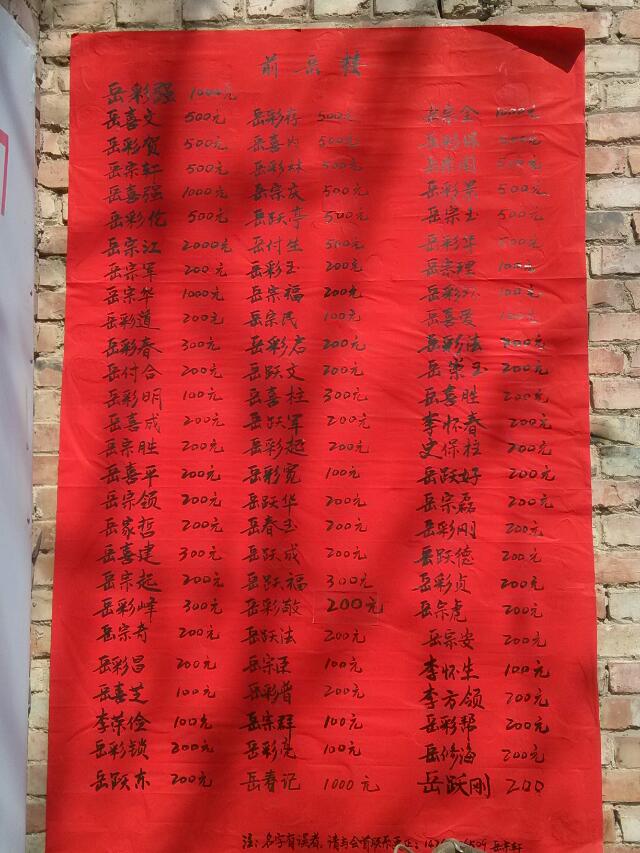 前岳楼
岳彩强 1000元
岳喜文 500元 岳彩行 500元 岳宗全 1000元
岳彩贺 500元 岳喜内 500元 岳彩保 500元
岳宗轩 500元 岳彩林 500元 岳宗国 500元
岳喜强 1000元 岳宗庆 500元 岳彩景 500元
岳彩伦 500元 岳跃亭 500元 岳宗玉 500元
岳宗江 2000元 岳付生 500元 岳彩华 500元
岳宗军 200元 岳彩玉 200元 岳宗理 100元
岳宗华 1000元 岳宗福 200元 岳彩 100元
岳彩道 200元 岳宗民 100元 岳喜爱 100元
岳彩春 300元 岳彩启 200元 岳彩法 200元
岳付合 200元 岳跃文 200元 岳荣玉 200元
岳彩明 100元 岳喜柱 300元 岳喜胜 200元
岳喜成 200元 岳跃军 200元 李怀春 200元
岳宗胜 200元 岳彩起 200元 史保柱 200元
岳喜平 200元 岳彩宽 100元 岳跃好 200元
岳宗领 200元 岳跃华 200元 岳宗磊 200元
岳家哲 200元 岳春玉 200元 岳彩刚 200元
岳喜建 300元 岳跃成 200元 岳跃德 200元
岳宗起 200元 岳跃福 300元 岳彩贞 200元
岳彩峰 300元 岳彩敬 200元 岳宗虎 200元
岳宗奇 200元 岳跃法 200元 岳宗安 200元
岳彩昌 200元 岳宗臣 100元 李怀生 100元
岳喜芝 100元 岳彩普 200元 李方领 200元
李荣俭 100元 岳宗群 100元 岳彩帮 200元
岳彩锁 200元 岳彩亮 100元 岳修海 200元
岳跃东 200元 岳春记 1000元 岳跃刚 200
注:名字有误者,请与会首联系更正: